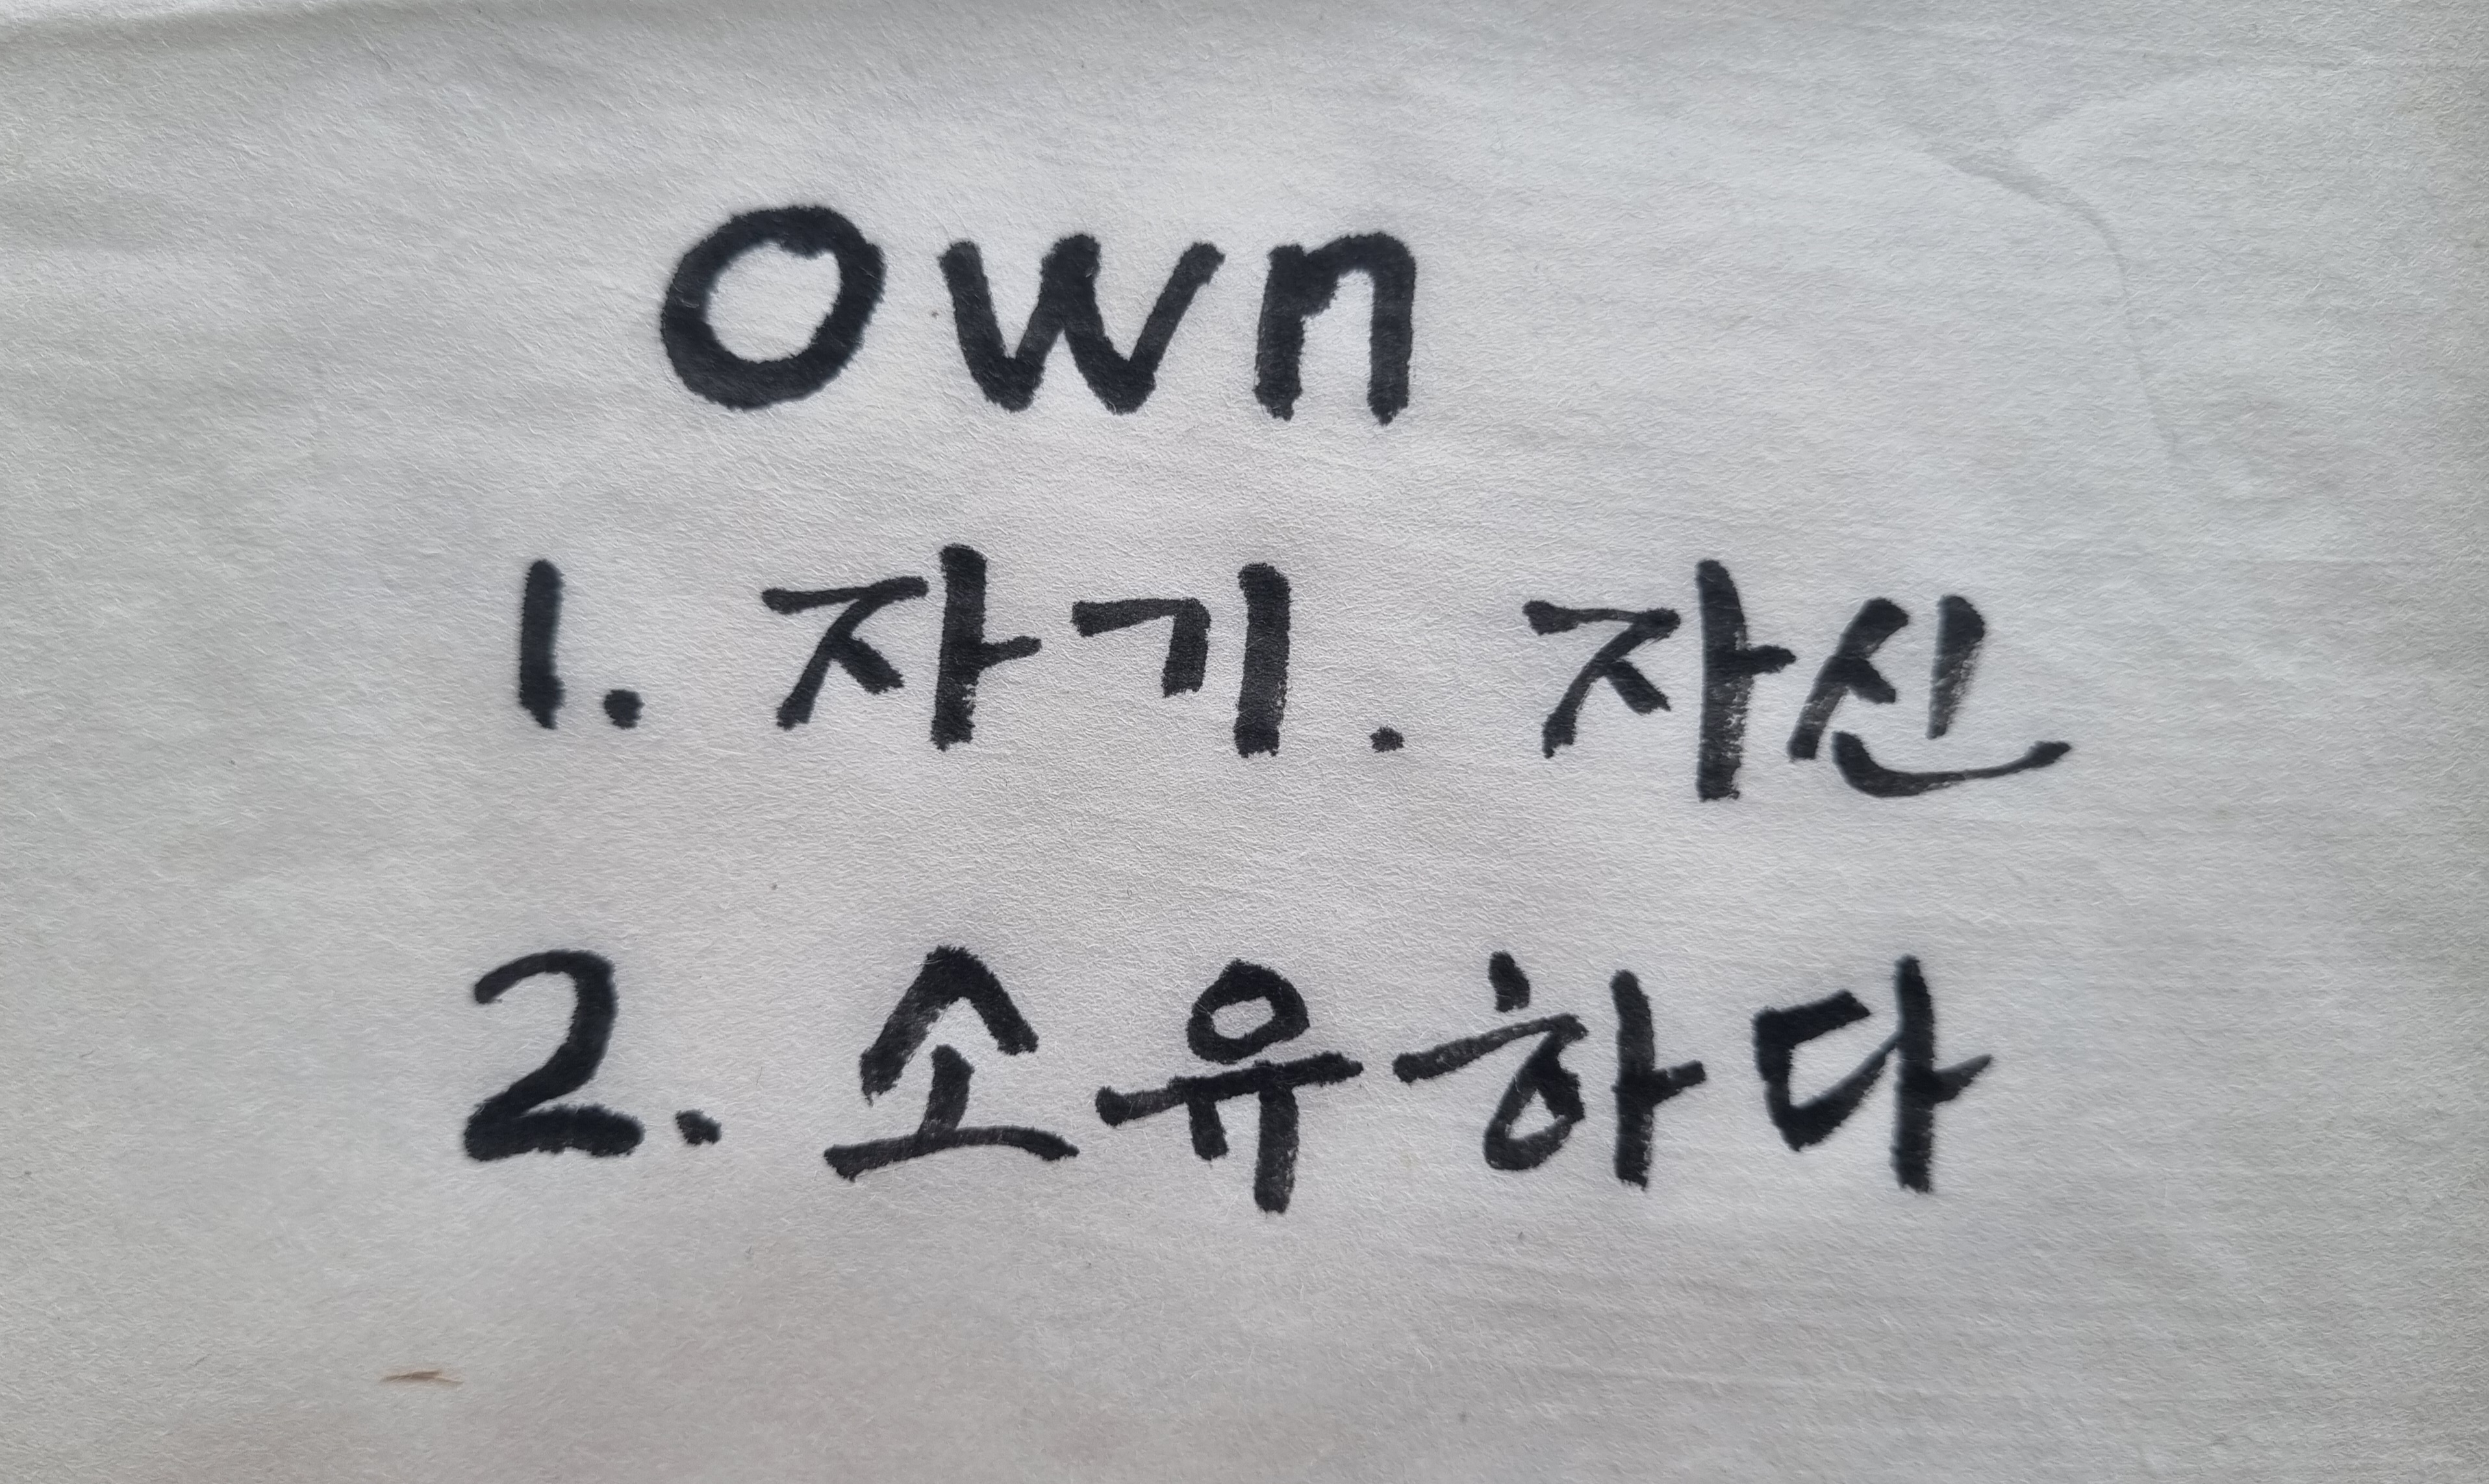 Own
1. 자기. 자신
2. 소유하다